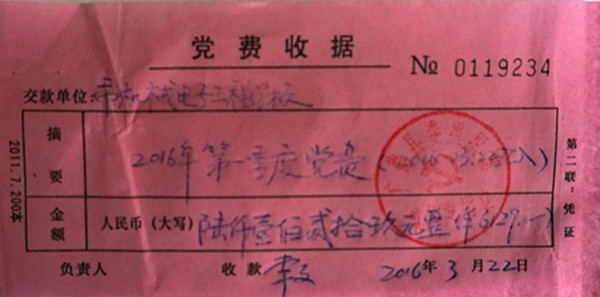 党费收据
№ 0119234
交款单位:市机械电子工程学校
摘要
2016年第一季度党费
金额
人民币(大写) 陆仟壹佰贰拾玖元整
负责人 收款 2016年3月22日
第二联:凭证
2011.7.200本